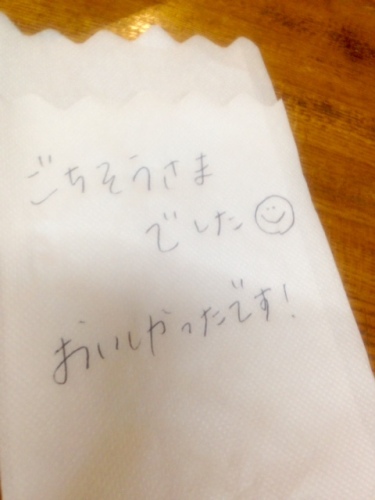 ごちそうさま
でした☺
おいしかったです!